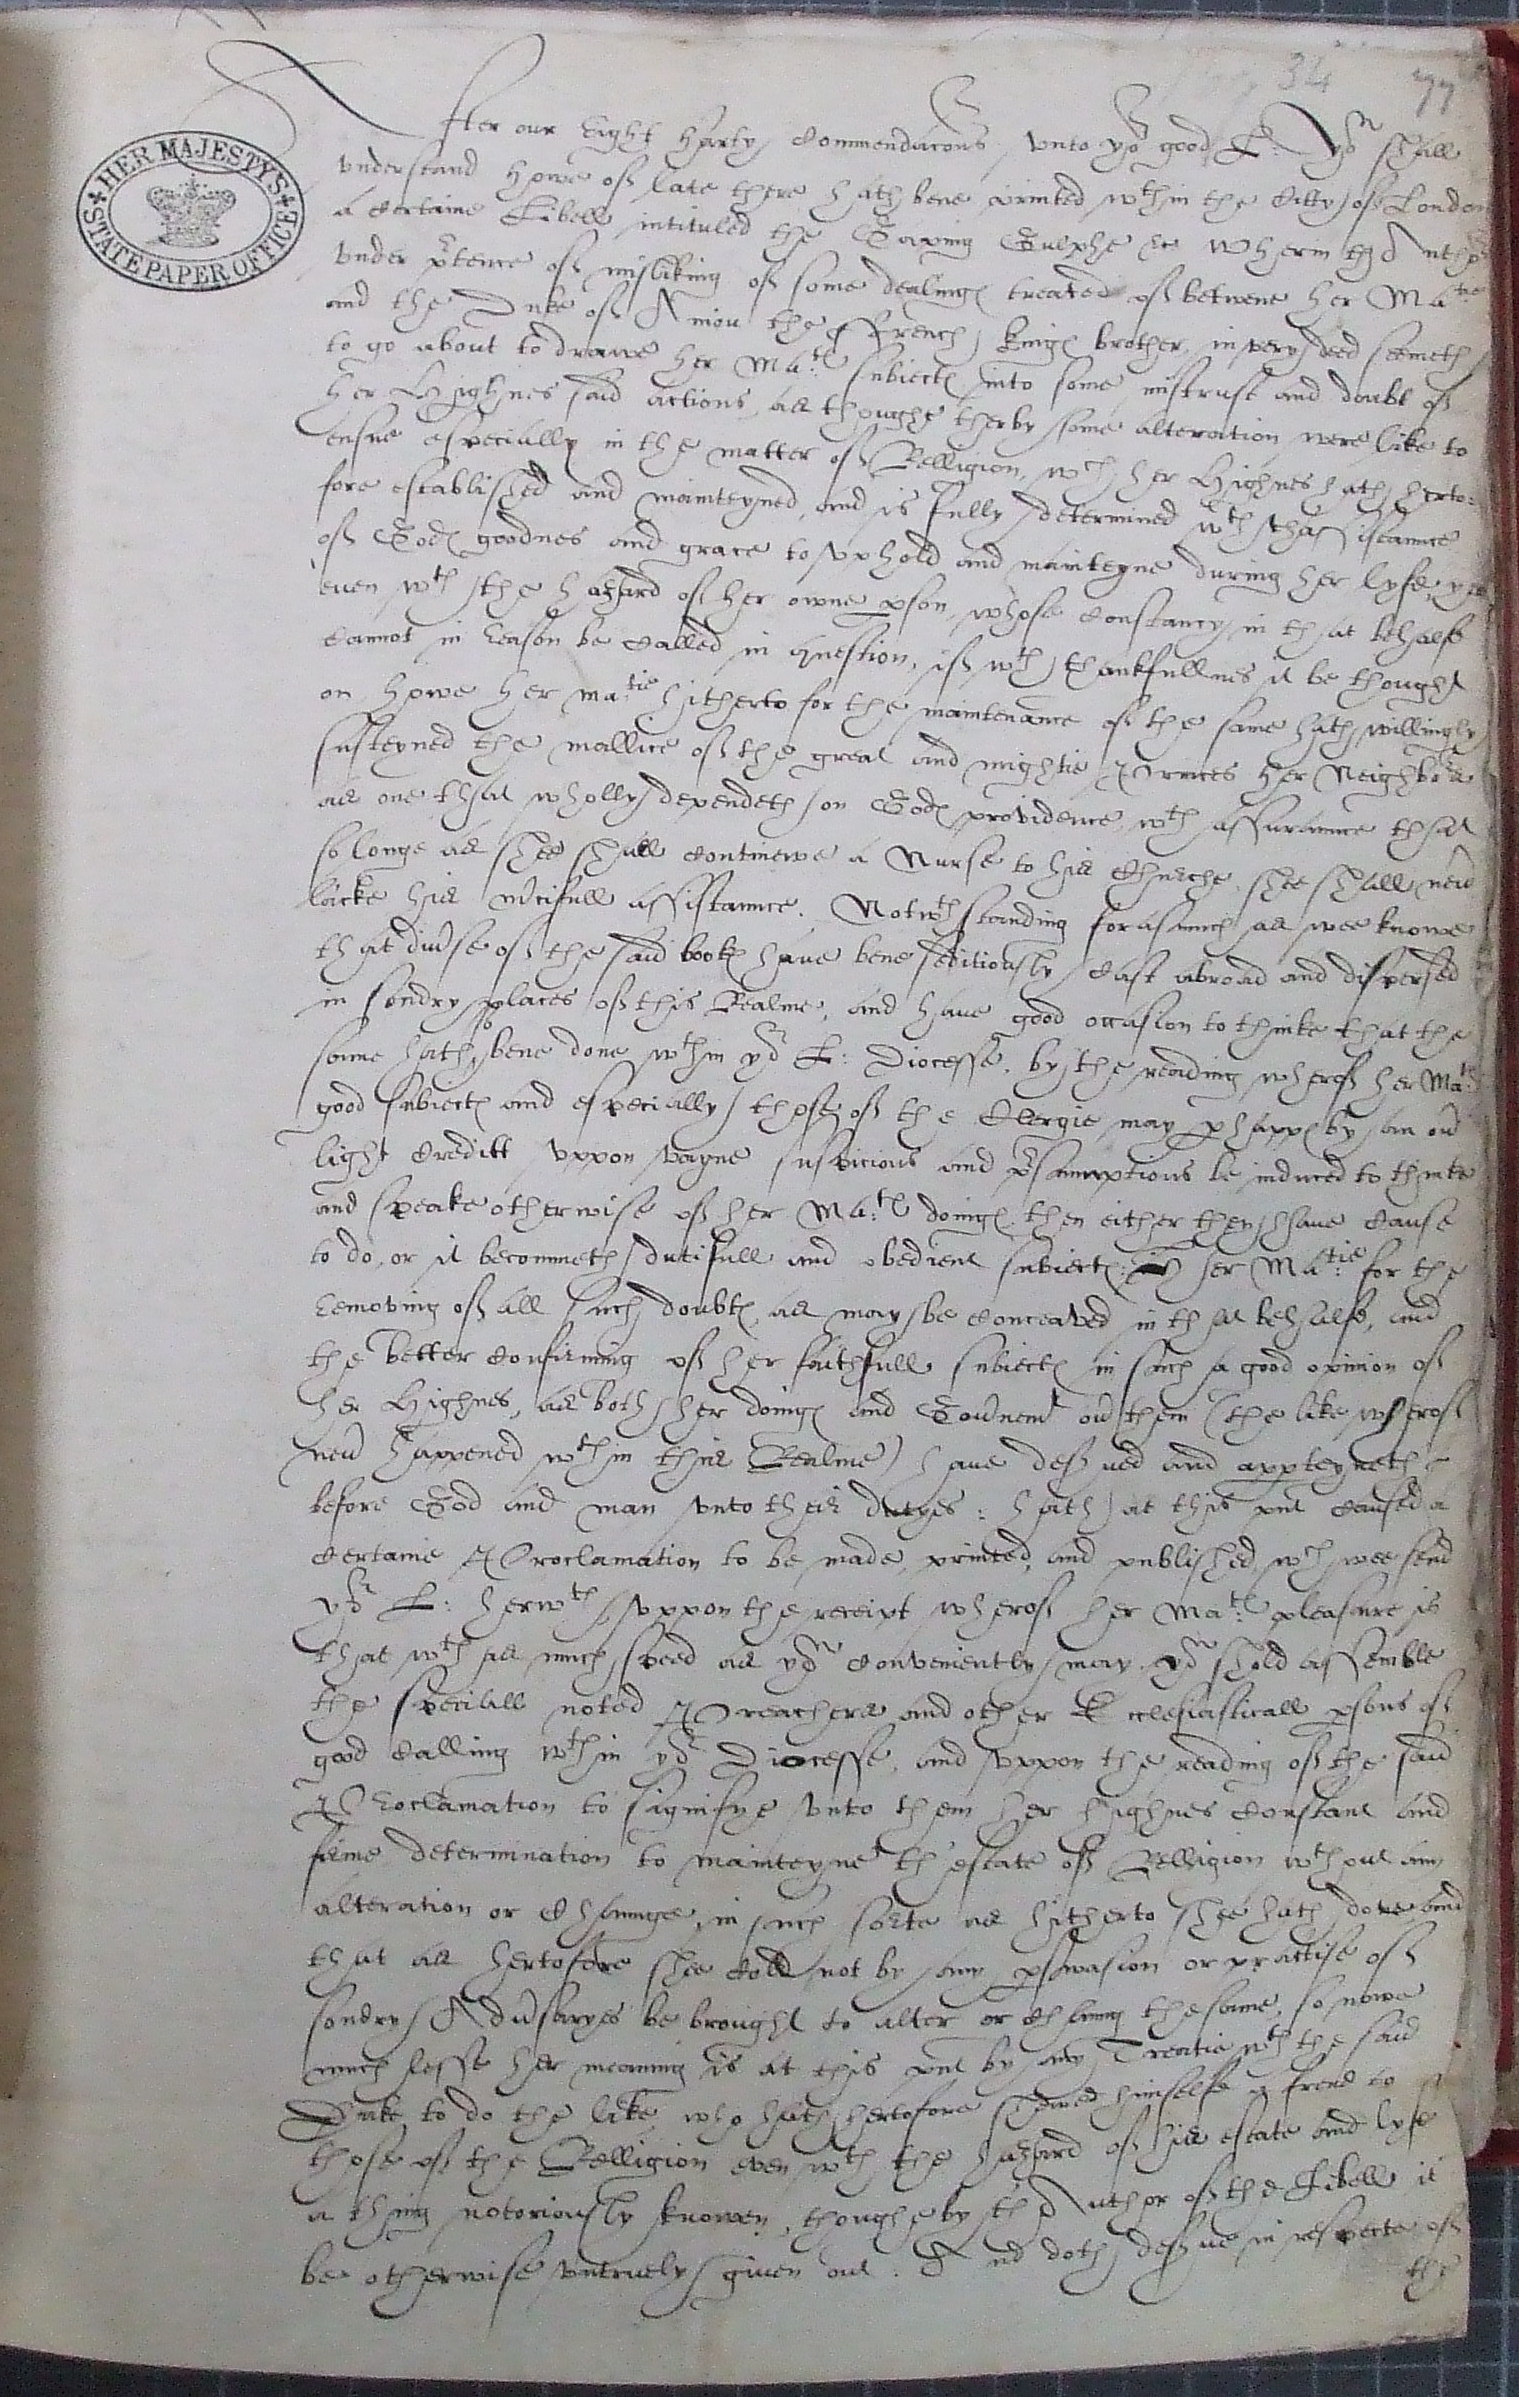 34 77
HER MAJESTYS STATE PAPER OFFICE
After our right harty Commendacons vnto yor good L: Yow shall
vnderstand howe of late there hath bene printed wthin the Citty of London
a certaine Libell intituled the Gaping Gulphe &c wherin the Author
vnder ptence of misliking of some dealinges treated of betwene her Matie
and the Duke of Aniou the French Kinges brother, in very deed seemeth
to go about to drawe her Mats: subiectes into some mistrust and doubt of
her Highnes said actions, as thoughe therby some alteration were like to
ensue especially in the matter of Relligion, wch her Highnes hath herto:
fore established and mainteyned, and is fully determined wth thassistaunce
of Godes goodnes and grace to vphold and mainteyne during her lyfe, yea
euen wth the hazard of her owne pson, whose constancy in that behalfe
cannot in reason be called in question, if wth thankfullnes it be thought
on howe her matie hitherto for the maintenance of the same hath willingly
susteyned the mallice of the great and mightie Princes her Neighbors
as one that wholly dependeth on Godes providence, wth assurance that
so longe as shee shall continewe a Nurse to his Churche, shee shall neuer
lacke his mcifull assistaunce. Notwthstanding forasmuch as wee knowe
that diuse of the said bookes haue bene seditiously cast abroad and dispersed
in sondry places of this Realme, and haue good occasion to thinke that the
same hath bene done wthin yor L: Diocesse, by the reading wherof her Mats
good subiectes and especially those of the Clergie may phappes by an ouer
light creditt vppon vayne suspicions and psumptions be induced to thinke
and speake otherwise of her Mats: doinges, then either they haue cause
to do, or it becommeth dutifull and obedient subiectes: her Matie: for the
remoiving of all such doubtes as may be conceaved in that behalfe, and
the better confirming of her faithfull subiectes in such a good opinion of
her Highnes, as both her doinges and Gouernemt ouer them (the like wherof
neuer happened wthin this Realme) haue deserued and appteyneth
before God and man vnto their dutyes: hath at this pnt caused a
certaine Proclamation to be made, printed, and published, wch wee send
yor L: herwth, vppon the receipt wherof her Mats: pleasure is
that wth as much speed as yow conveniently may yow shold assemble
the speciall noted Preachers and other Ecclesiasticall psons of
good calling wthin yor Diocesse, and vppon the reading of the said
Proclamation to signifye vnto them her highnes constant and
firme determination to mainteyne th'estate of Relligion wthout any
alteration or chaunge, in such sorte as hitherto shee hath done, and
that as hertofore shee cold not by any pswasion or practise of
sondry Aduersaryes be brought to alter or chaung the same, so nowe
much lesse her meaning is at this pnt by any Treatie wth the said
Duke to do the like, who hath hertofore shewed himselfe a frend to
those of the Relligion even wth the hazard of his estate and lyfe
a thing notoriously knowen, thoughe by the Author of the Libell it
be otherwise vntruely giuen out. And doth deserue in respecte of
the